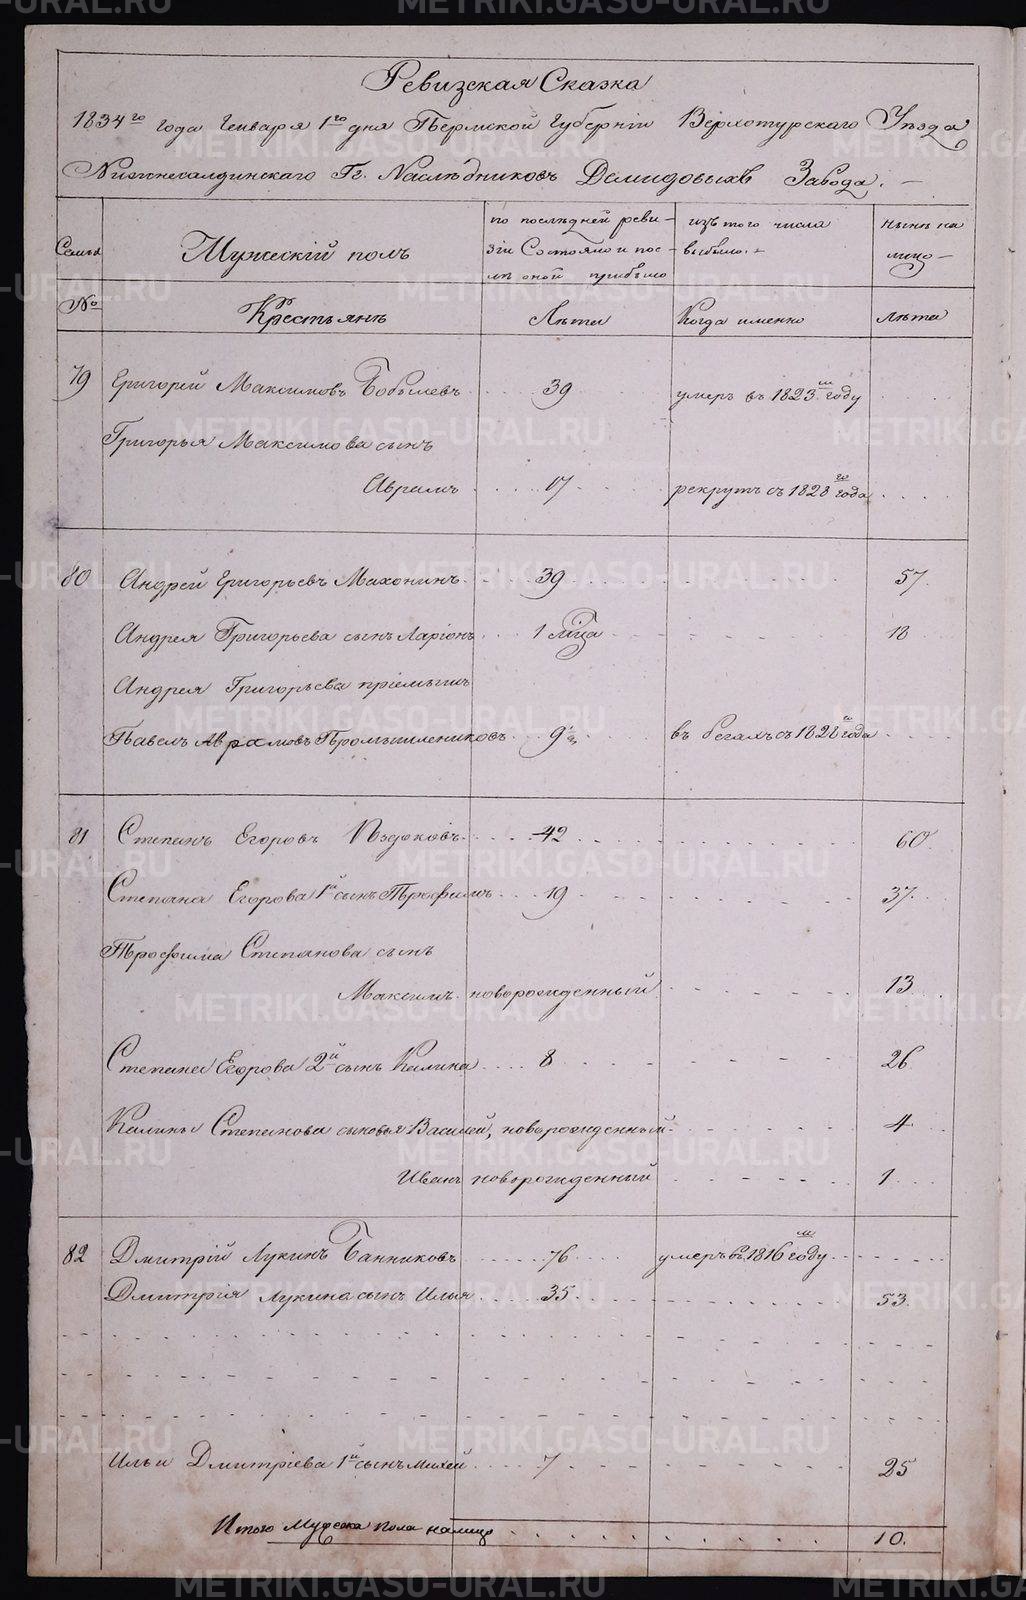 Ревизская Сказка
1834го года Генваря 1го дня Пермской Губернiи Верхотурскаго Уѣзда
Нижнесалдинскаго Гг. Наслѣдниковъ Демидовыхъ Завода. —
Семьи
№
Мужескiй полъ
Крестьянъ
по послѣдней реви-
зiи Состояло и пос-
лѣ оной прибыло
Лѣта
изъ того числа
выбыло. -
Когда именно
нынѣ на
лицо -
Лѣта
79 Григорей Максимовъ Бобылевъ 39 умеръ въ 1823м году
Григорья Максимова сынъ
Аврамъ 17 рекрутъ съ 1828го года
80 Андрей Григорьевъ Махонинъ 39 57
Андрея Григорьева сынъ Ларiонъ 1 мѣца 18
Андрея Григорьева прiемышъ
Павелъ Аврамовъ Промышлениковъ 9 въ бегахъ съ 1828 года
81 Степанъ Егоровъ 42 60
Степана Егорова 1й сынъ Трофимъ 19 37
Трофима Степанова сынъ
Максимъ новорожденный 13
Степана Егорова 2й сынъ Калина 8 26
Калины Степанова сыновья Василей, новорожденный 4
Иванъ новорожденный 1
82 Дмитрiй Лукинъ Банниковъ 76 умеръ въ 1816м году
Дмитрiя Лукина сынъ Илья 35 53
Ильи Дмитрiева 1й сынъ Михей 7 25
Итого Мужеска пола налицо 10.
METRIKI.GASO-URAL.RU